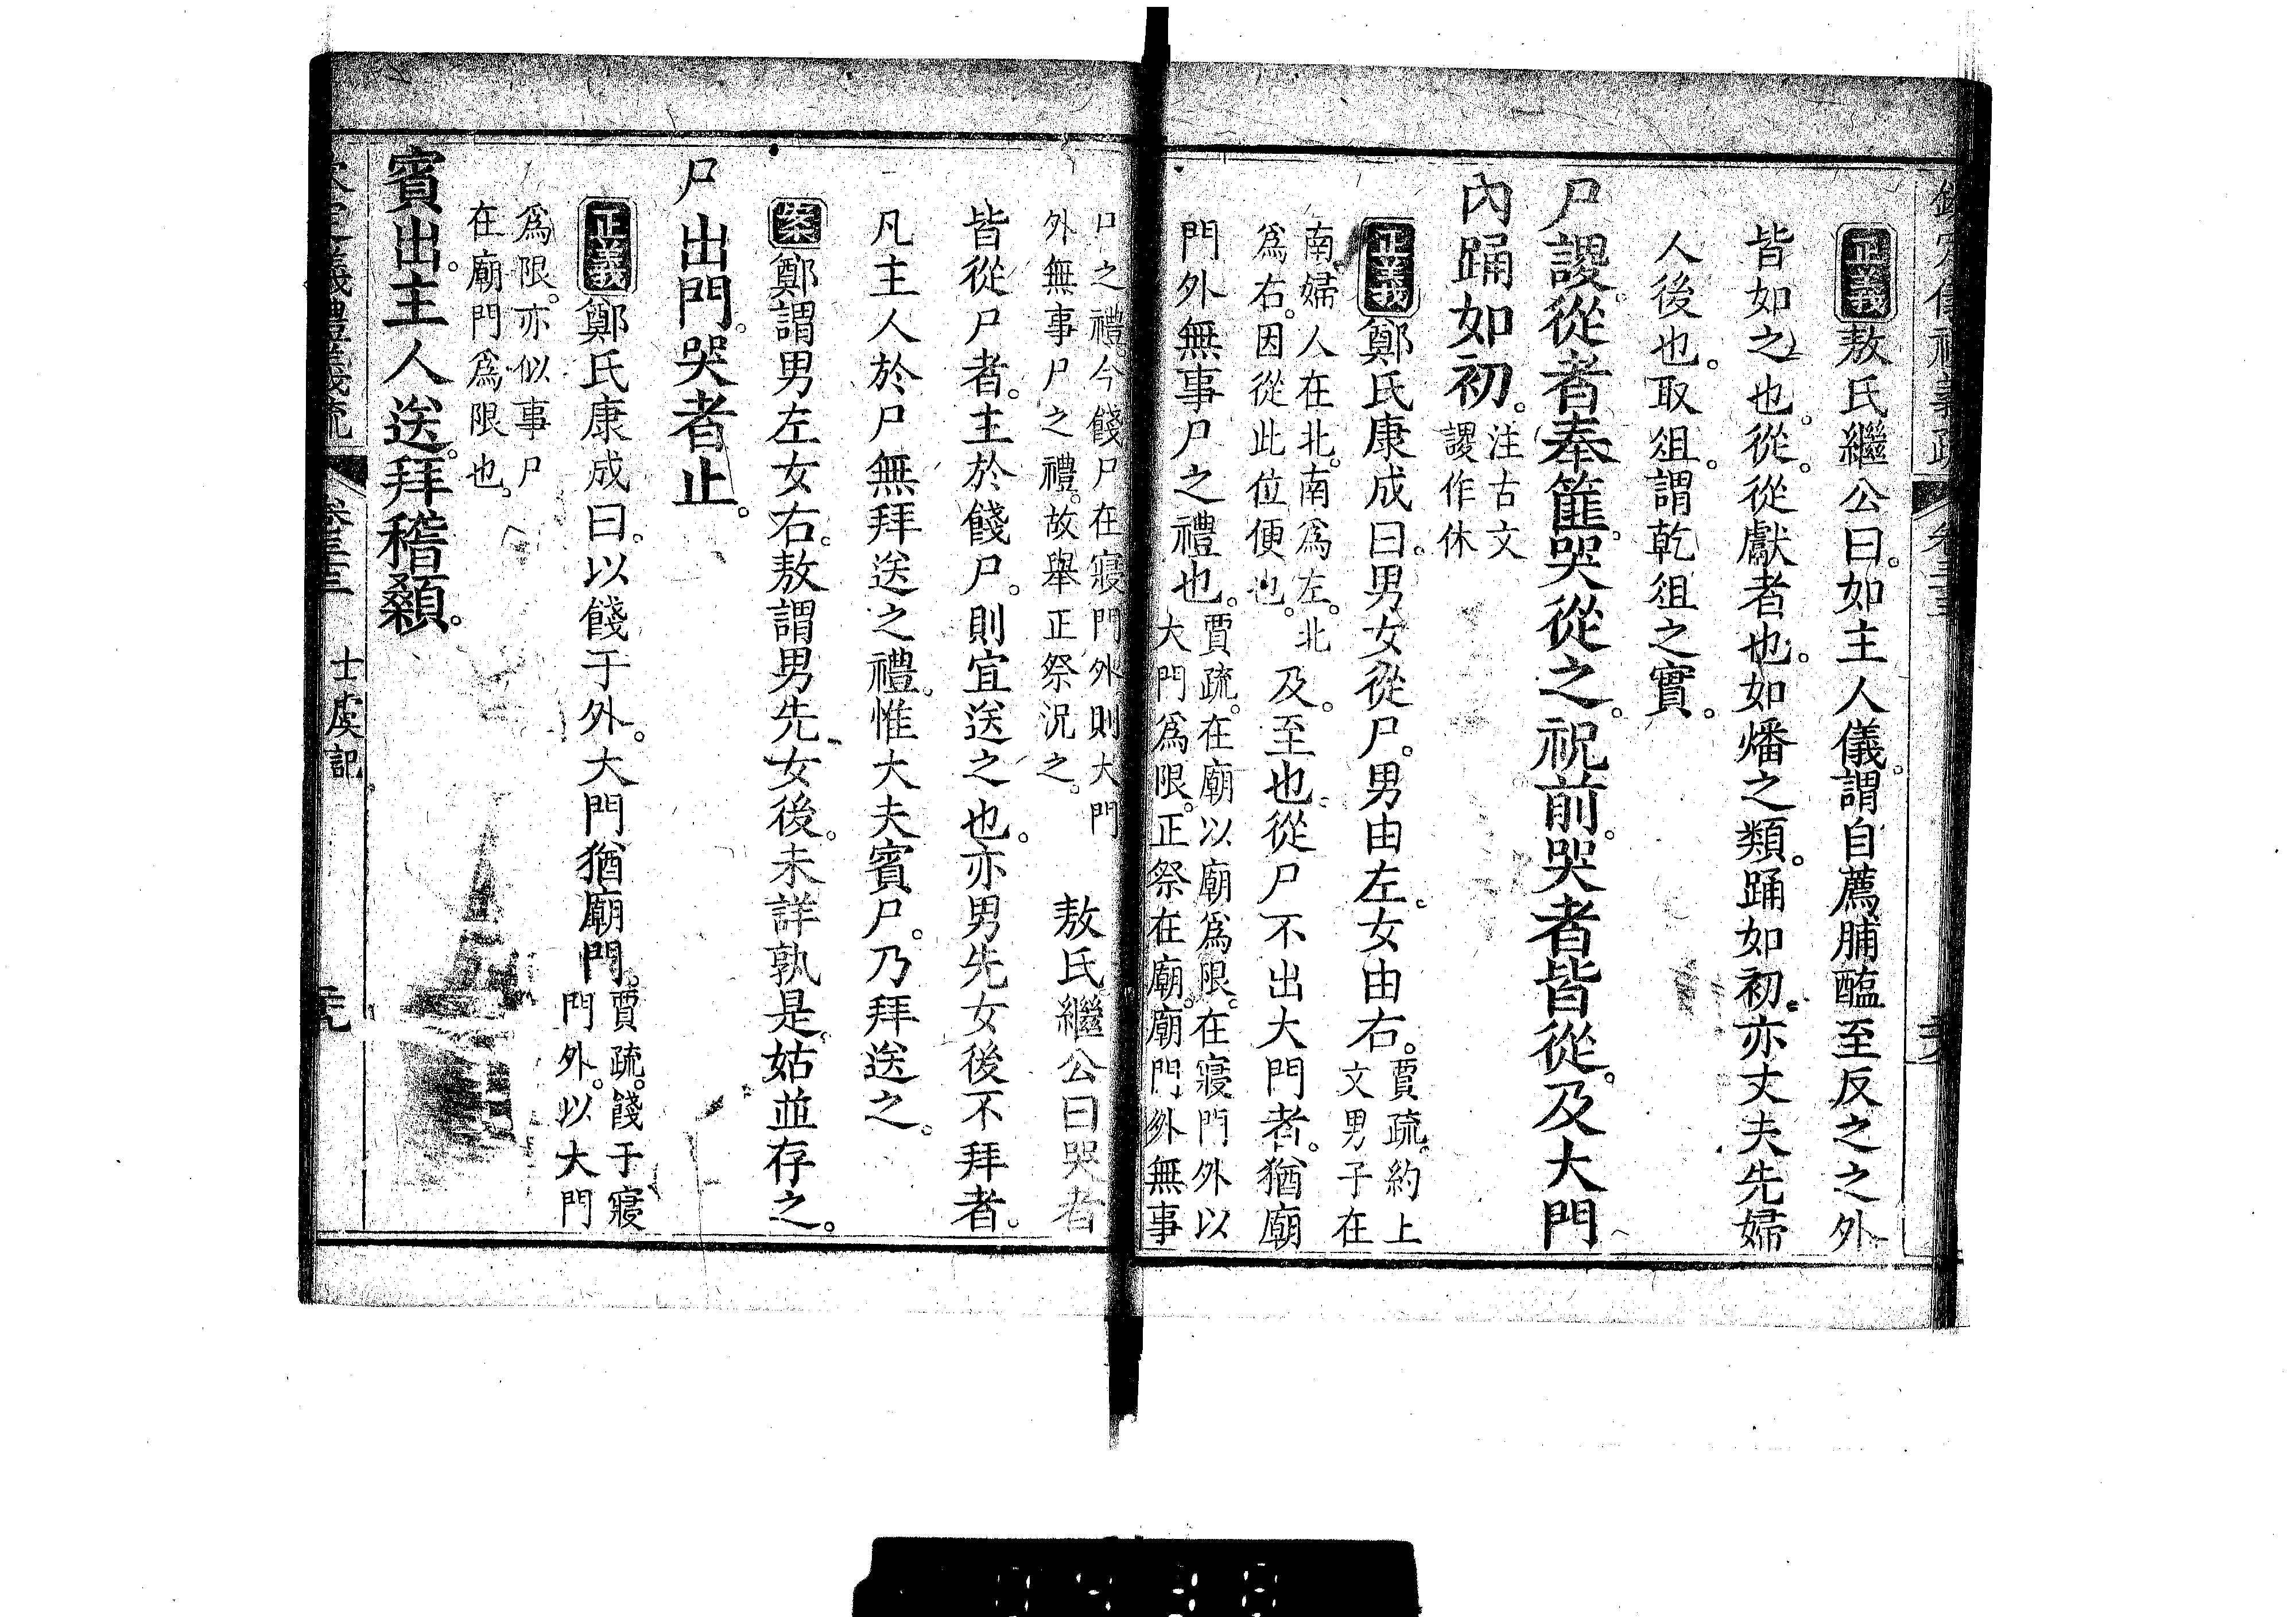 欽定儀禮義疏 卷三十三
正義敖氏繼公曰。如主人儀。謂自薦脯醢至反之之外
皆如之也。從。從獻者也。如燔之類。踊如初。亦丈夫先婦
人後也。取俎。謂乾俎之實。
尸謖。從者奉篚。哭從之。祝前。哭者皆從。及大門
內。踊如初。注古文
謖作休
正義鄭氏康成曰。男女從尸。男由左。女由右。賈疏。約上
文男子在
南。婦人在北。南為左。北
為右。因從此位便也。
及。至也。從尸不出大門者。猶廟
門外無事尸之禮也。賈疏。在廟以廟為限。在寢門外以
大門為限。正祭在廟。廟門外無事
尸之禮。今餞尸在寢門外則大門
外無事尸之禮。故舉正祭況之。
敖氏繼公曰哭者
皆從尸者。主於餞尸。則宜送之也。亦男先女後不拜者。
凡主人於尸無拜送之禮。惟大夫賓尸。乃拜送之。
案鄭謂男左女右。敖謂男先女後。未詳孰是。姑並存之。
尸出門。哭者止。
正義鄭氏康成曰。以餞于外。大門猶廟門。賈疏。餞于寢
門外。以大門
為限。亦似事尸
在廟門為限也。
賓出。主人送。拜稽顙。
欽定儀禮義疏 卷三十三 士虞記